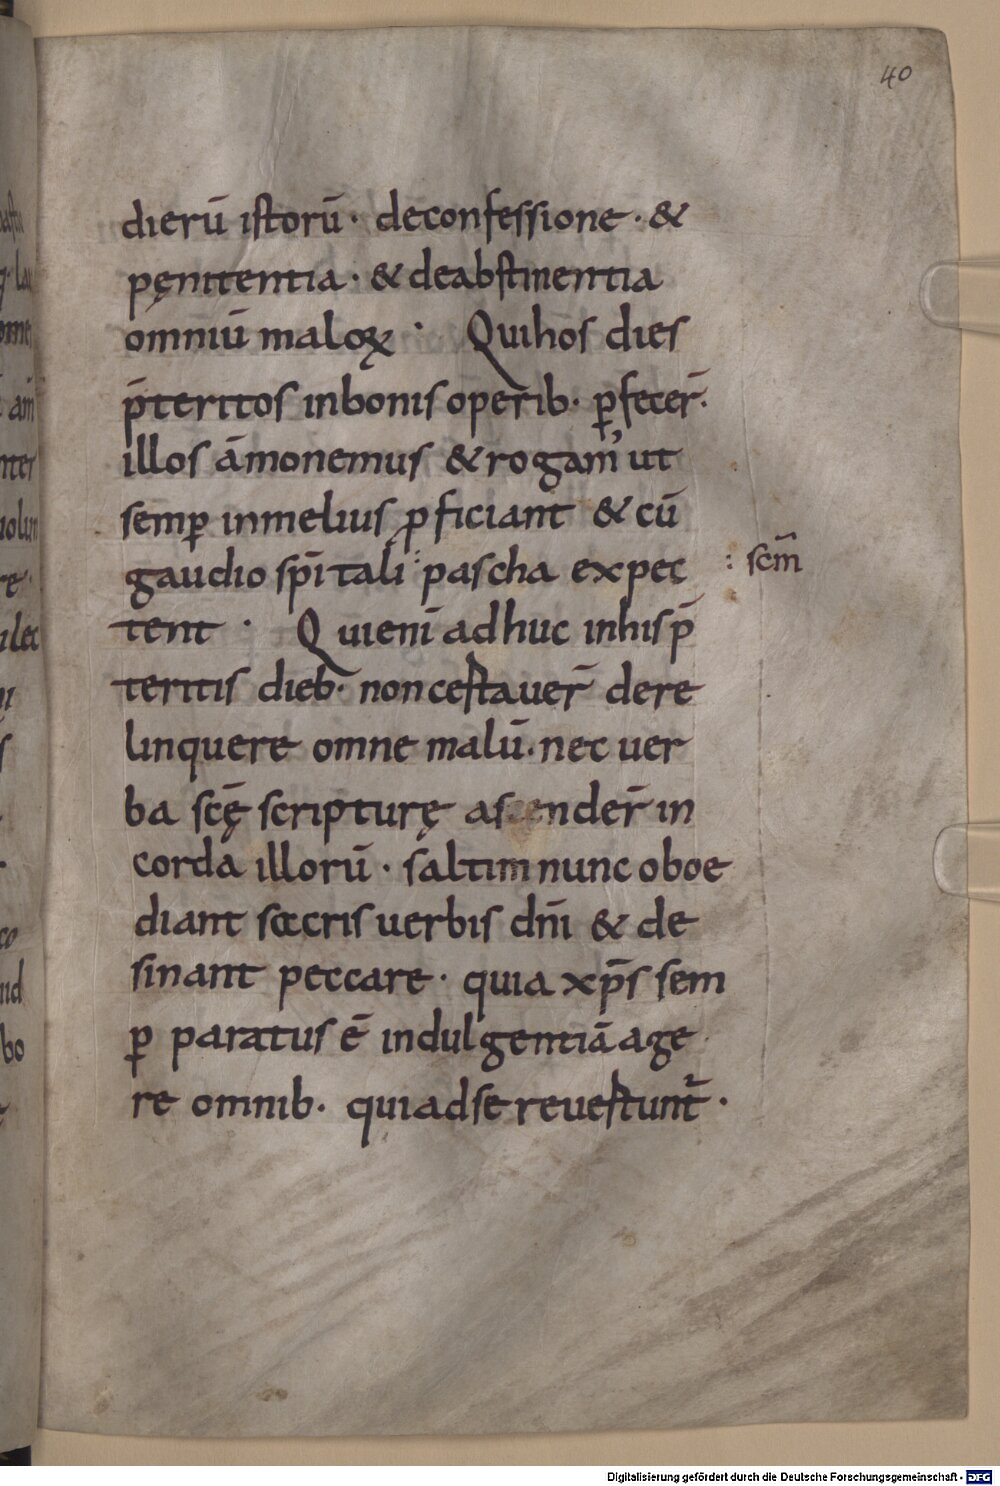 40
dierū istorū · deconfessione · &
pęnitentia · & deabstinentia
omniū maloꝝ · Quihos dies
p̄teritos inbonis operib· ꝑfecer̄·
illos āmonemus & rogam᾽ ut
semꝑ inmelius ꝓficiant & cū
gaudio sp̄itali : pascha expec : scm̄
tent · Quieni̅ adhuc inhis p̄
teritis dieb· non cessauer̄ dere
linquere omne malū · nec uer
ba scę̄ scripturę ascender̄ in
corda illorū · saltim nunc oboe
diant sacris uerbis dn̄i & de
sinant peccare · quia xp̄s sem
ꝑ paratus ē indulgentiā age
re omnib· qui ad se reuertunt᷑ ·
Digitalisierung gefördert durch die Deutsche Forschungsgemeinschaft - DFG